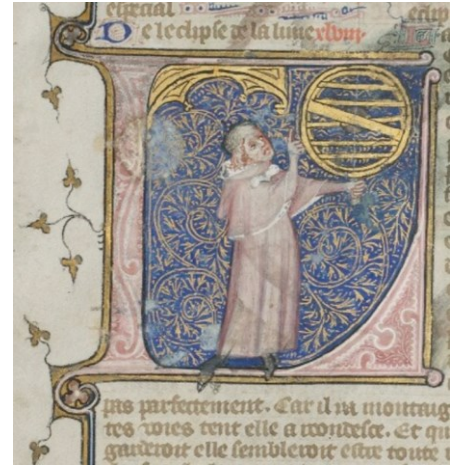 especial
eclip
De leclipse de la lune xlviii
pas parfectement. Car il na montaig
tes voies tent elle a rondesce. Et qu
garderoit elle sembleroit estre toute